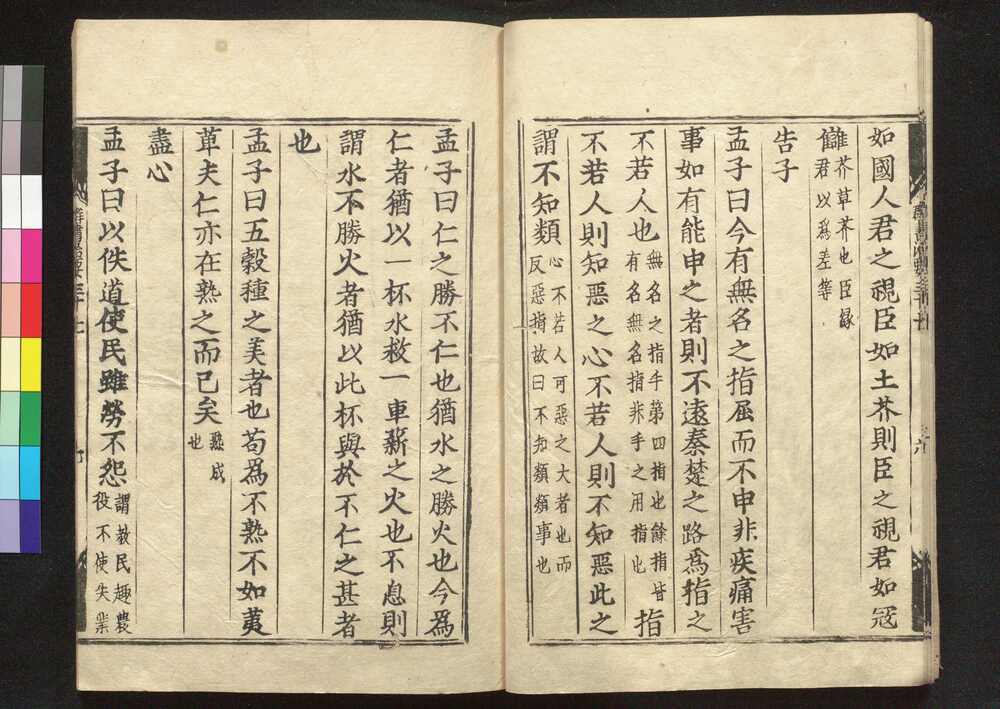 如國人君之視臣如土芥則臣之視君如冦
讎芥草芥也臣緣君以爲差等
告子
孟子曰今有無名之指屈而不申非疾痛害
事如有能申之者則不遠秦楚之路爲指之
不若人也無名之指手第四指也餘指皆有名無名指非手之用指也指
不若人則知惡之心不若人則不知惡此之
謂不知類心不若人可惡之大者也而反惡指故曰不知類類事也
孟子曰仁之勝不仁也猶水之勝火也今爲
仁者猶以一杯水救一車薪之火也不息則
謂水不勝火者猶以此杯與於不仁之甚者
也
孟子曰五穀種之美者也苟爲不熟不如荑
草夫仁亦在熟之而已矣熟成也
盡心
孟子曰以佚道使民雖勞不怨謂教民趣農役不使失業
群書治要